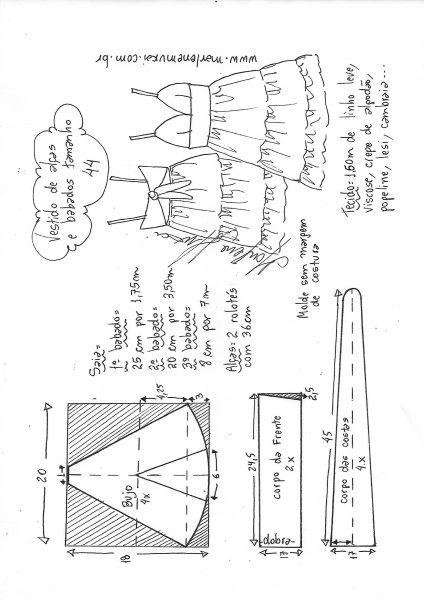 www.marlenemukai.com.br
Vestido de alças
e babados tamanho
44
Tecido: 1,50m de linho leve,
viscose, crepe de algodão,
popeline, lesi, cambraia...
Saia:
1º babado:
25 cm por 1,75m
2º babado:
20 cm por 3,50m
3º babado:
8 cm por 7m
Alças: 2 rolotês
com 36cm
Molde sem margem
de costura
20
1
4,25
3
Bojo
4x
6
18
24,5
2,5
corpo da Frente
2x
dobra
17
45
corpo das costas
4x
17